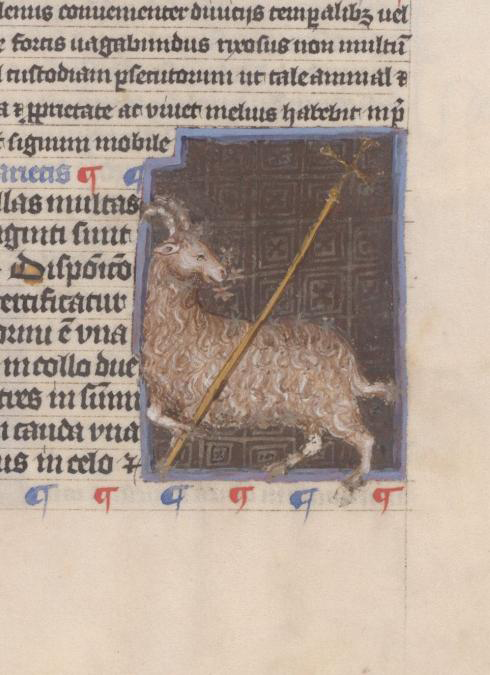 lemis conuenienter diuicijs temꝑalibꝫ uel
e fortis uagabundus rixosus non multū
l custodiam ꝑsecutorum ut tale animal ⁊
a ⁊ ꝓprietate ac viuet melius habebit
signum mobile
arietis ¶ ¶
llas multas
aginti sunt
Disponit̄o
certificatur
orum ē vna
in collo due
tres in sūmi
n cauda vna
us in celo ⁊
¶ ¶ ¶ ¶ ¶ ¶